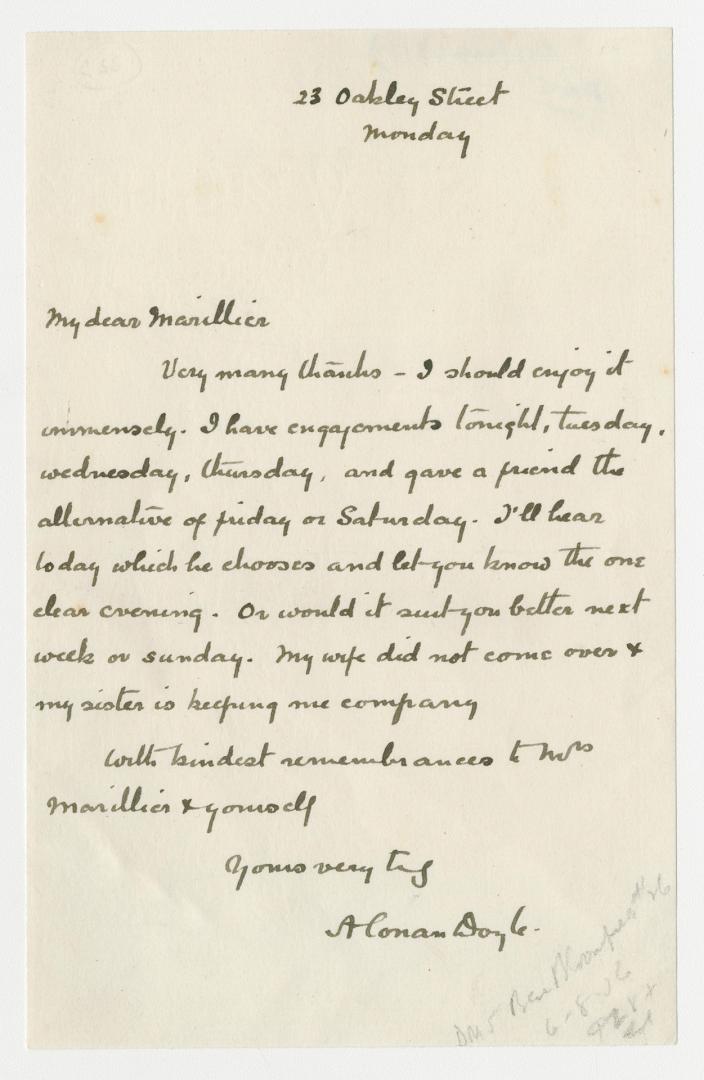 23 Oakley Street
Monday
My dear Marillier
Very many thanks – I should enjoy it
immensely. I have engagements tonight, tuesday,
wednesday, thursday, and gave a friend the
alternative of friday or Saturday. I'll hear
today which he chooses and let you know the one
clear evening. Or would it suit you better next
week or sunday. My wife did not come over &
my sister is keeping me company
With kindest remembrances to Mrs
Marillier & yourself
Yours very try
A Conan Doyle.
6-8 26